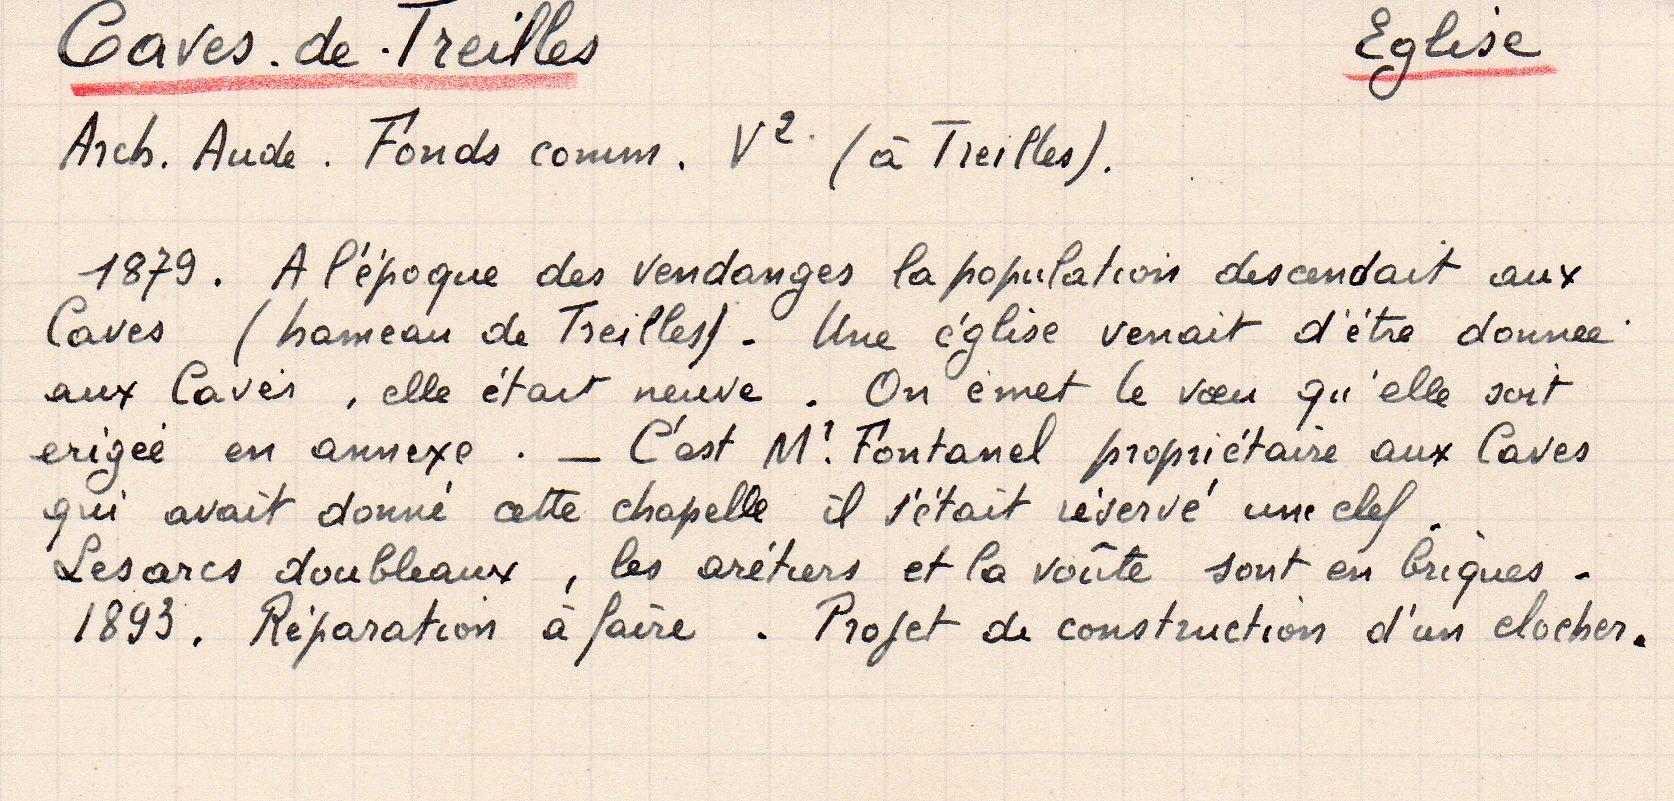 Caves-de-Treilles Eglise
Arch. Aude. Fonds comm. V² (à Treilles).
1879. A l'époque des vendanges la population descendait aux
Caves (hameau de Treilles). Une église venait d'être donnée
aux Caves, elle était neuve. On émet le vœu qu'elle soit
erigée en annexe. — C'est Mr. Fontanel propriétaire aux Caves
qui avait donné cette chapelle il s'était réservé une clef.
Les arcs doubleaux, les arétiers et la voûte sont en briques -
1893. Réparation à faire. Projet de construction d'un clocher.